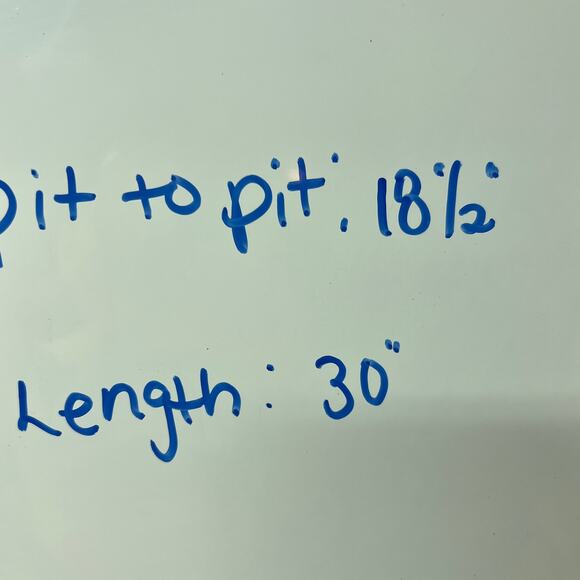 pit to pit: 18½"
Length: 30"